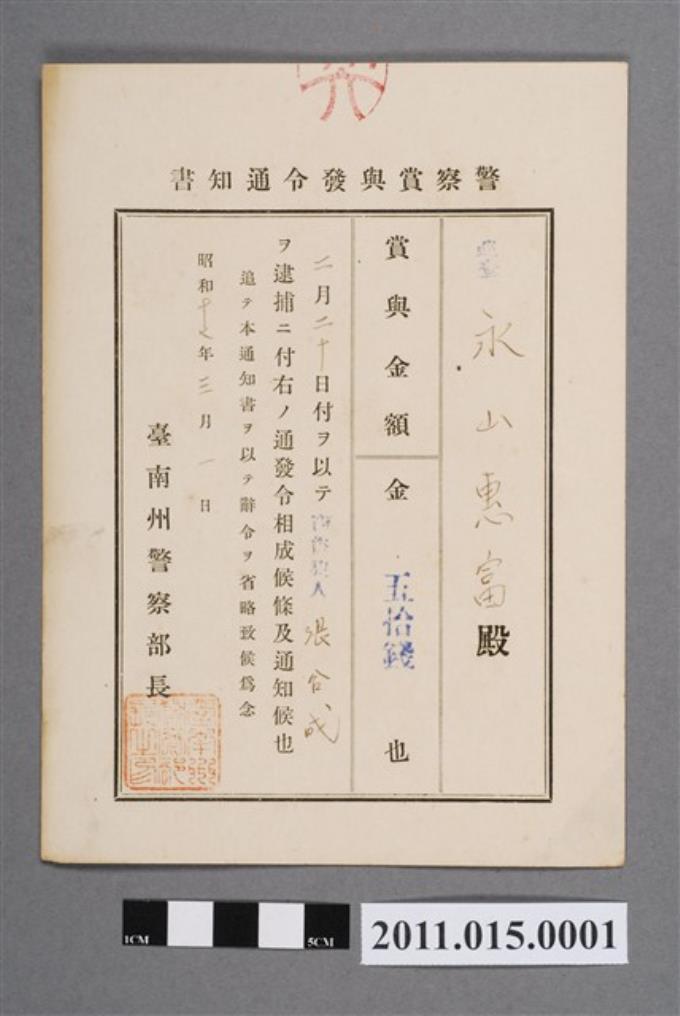 警察賞與發令通知書
永山惠富殿
賞與金額
金 五拾錢 也
二月二十日付ヲ以テ 人 張合成
ヲ逮捕ニ付右ノ通發令相成候條及通知候也
追テ本通知書ヲ以テ辭令ヲ省略致候爲念
昭和十七年三月一日
臺南州警察部長
1CM
5CM
2011.015.0001